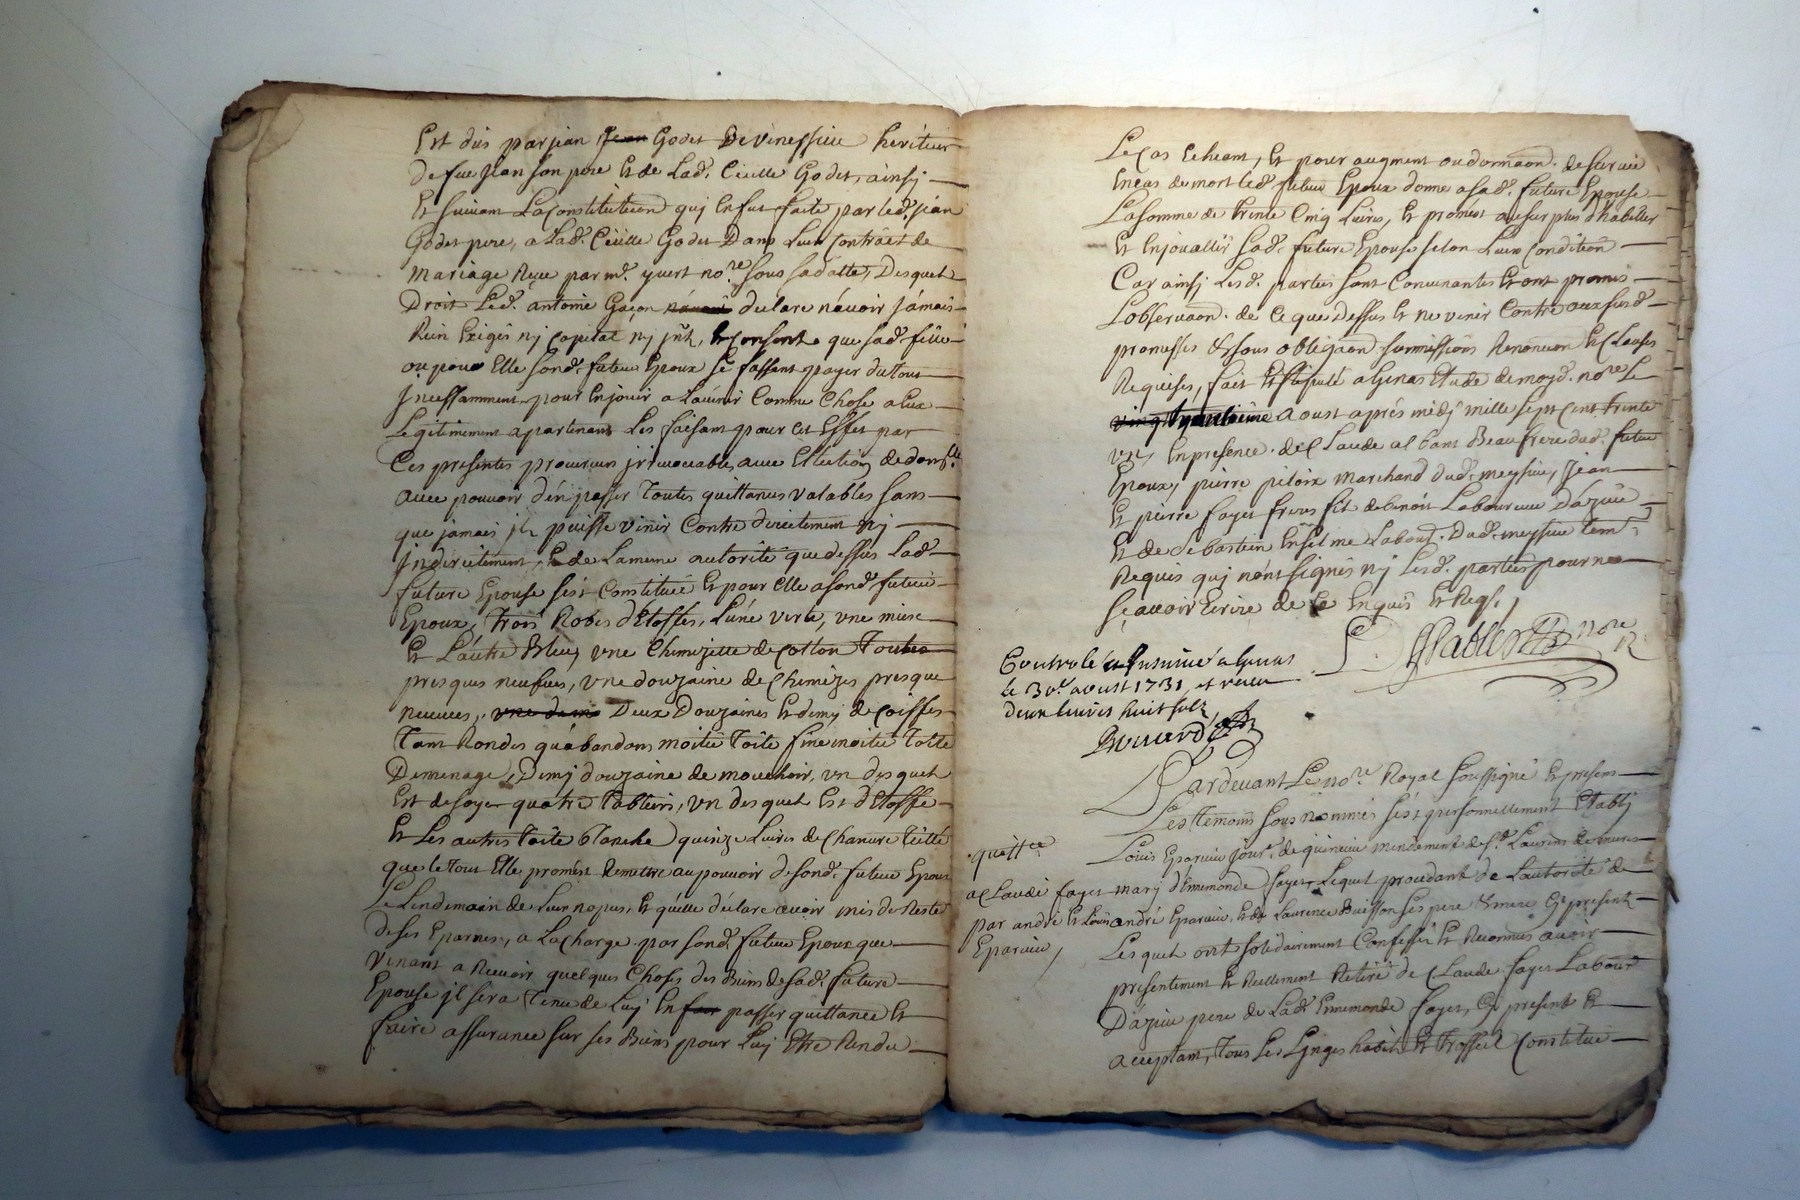 Est dûs par jean Jean Godet De vinessieu heritier
de feu Jean son pere Et de Lad. Cécille Godet, ainsy
Et suivant La Constitution quj En fut faite par led. jean
Godet pere, a Lad. Cécille Godet Dans Leur Contrâct de
mariage Reçeu par me. yvert nore. sous sa datte, Desquels
Droit Led. antoine Gaçon declare n'avoir jâmais
Rien Exigés nj capital nj jnt, Et consent que sad. fille
ou pour Elle sond. futeur Epoux se fassent payer du tout
Jncessamment pour En jouir a L'avenir Comme Chose a Eux
Legitimement apartenant Les faisant pour cet Effet par
Ces presentes procureurs jrrevocables, avec Eslection de domlle.
avec pouvoir d'en passer Toutes quittances valables sans
que jamais jls puisse venir Contre directement nj
Jndirectement, Et de La meme autorité que dessus Lad.
future Epouse s'est Constituée Et pour Elle a sond. futeur
Epoux, Trois Robes d'Etoffes, L'une verte, vne
Et L'autre Bleu, vne Chemizette de cotton Toutes
presques neufves, vne douzaine de Chemizes presque
neuves, vne demi Deux Douzaines Et demj de Coiffes
Tant Rondes qu'a bandans moitié Toile fine moitié Toile
De menage, Demj douzaine de mouchoir, vn desquels
Est de soye, quatre Tabliers, vn desquels Est d'Etoffe
Et Les autres Toile blanche, quinze Livres de Chanvre Teillé
que le tout Elle promêt Remettre au pouvoir de sond. futeur Epoux
Le Lendemain de Leur nopces, Et quelle déclare avoir mis de Reste
de ses Eparnes, a La Charge par sond. futeur Epoux que
venant a Recevoir quelques Choses des Biens de sad. future
Epouse jl sera Tenu de Luj En passer quittance Et
faire assurance sur ses Biens pour Luj Etre Rendu
Le Cas Echeant, Et pour augment ou donnaon. de survie
En cas de mort led. futeur Epoux donne a sad. future Epouse
La somme de trente Cinq Livres, Et promêt au surplus d'habiller
Et Enjoualler sad. future Epouse selon Leur Condition
Car ainsj Lesd. parties sont Convenantes Et ont promis
L'observaon. de Ce que Dessus Et ne venir Contre aux susd.
promesses Et sous obligaon. submissions Renonciaon Et Clauses
Requises, fait Et stipulé a Genas Etude de moyd. nore. Le
aoust aprés midj mille sept cent trente
vn, En presence de Claude al bant Beaufrere dud. futeur
Epoux, pierre pitoix marchand dud. meysieu, Jean
Et pierre fayet freres fils de benoit Laboureur D'azieu
Et de Sebastien Enselme Labour. Dud. meysieu tem.
Requis quj n'ont signés nj Lesd. parties pour ne
sçavoir Ecrire de ce Enquis Et Reqs.
nore
R.
Controlé et Insinué a Genas
le 30e. aoust 1731, et receu
deux livres huit sols,
Pardevant Le nore. Royal soussigné Et presens
Les Temoins sous nommés s'est personnellement Etablj
quittce.
Louis Eparvier jour. de quincieu mendement de St. Laurens de mures
a Claude fayet marj d'Ennemonde fayet, Lequel procedant de L'autorité de
par andré Et Louis andré Eparvier, Et de Laurence Buisson ses pere Et mere Cy present
Eparvier,
Lesquels ont solidairement Confessé Et Reconnus avoir
presentement Et Reellement Retiré de Claude fayet Labour.
D'azieu pere de Lad. Ennemonde fayet, Cy present Et
acceptant, Tous Les Linges habits Et trossel Constitué